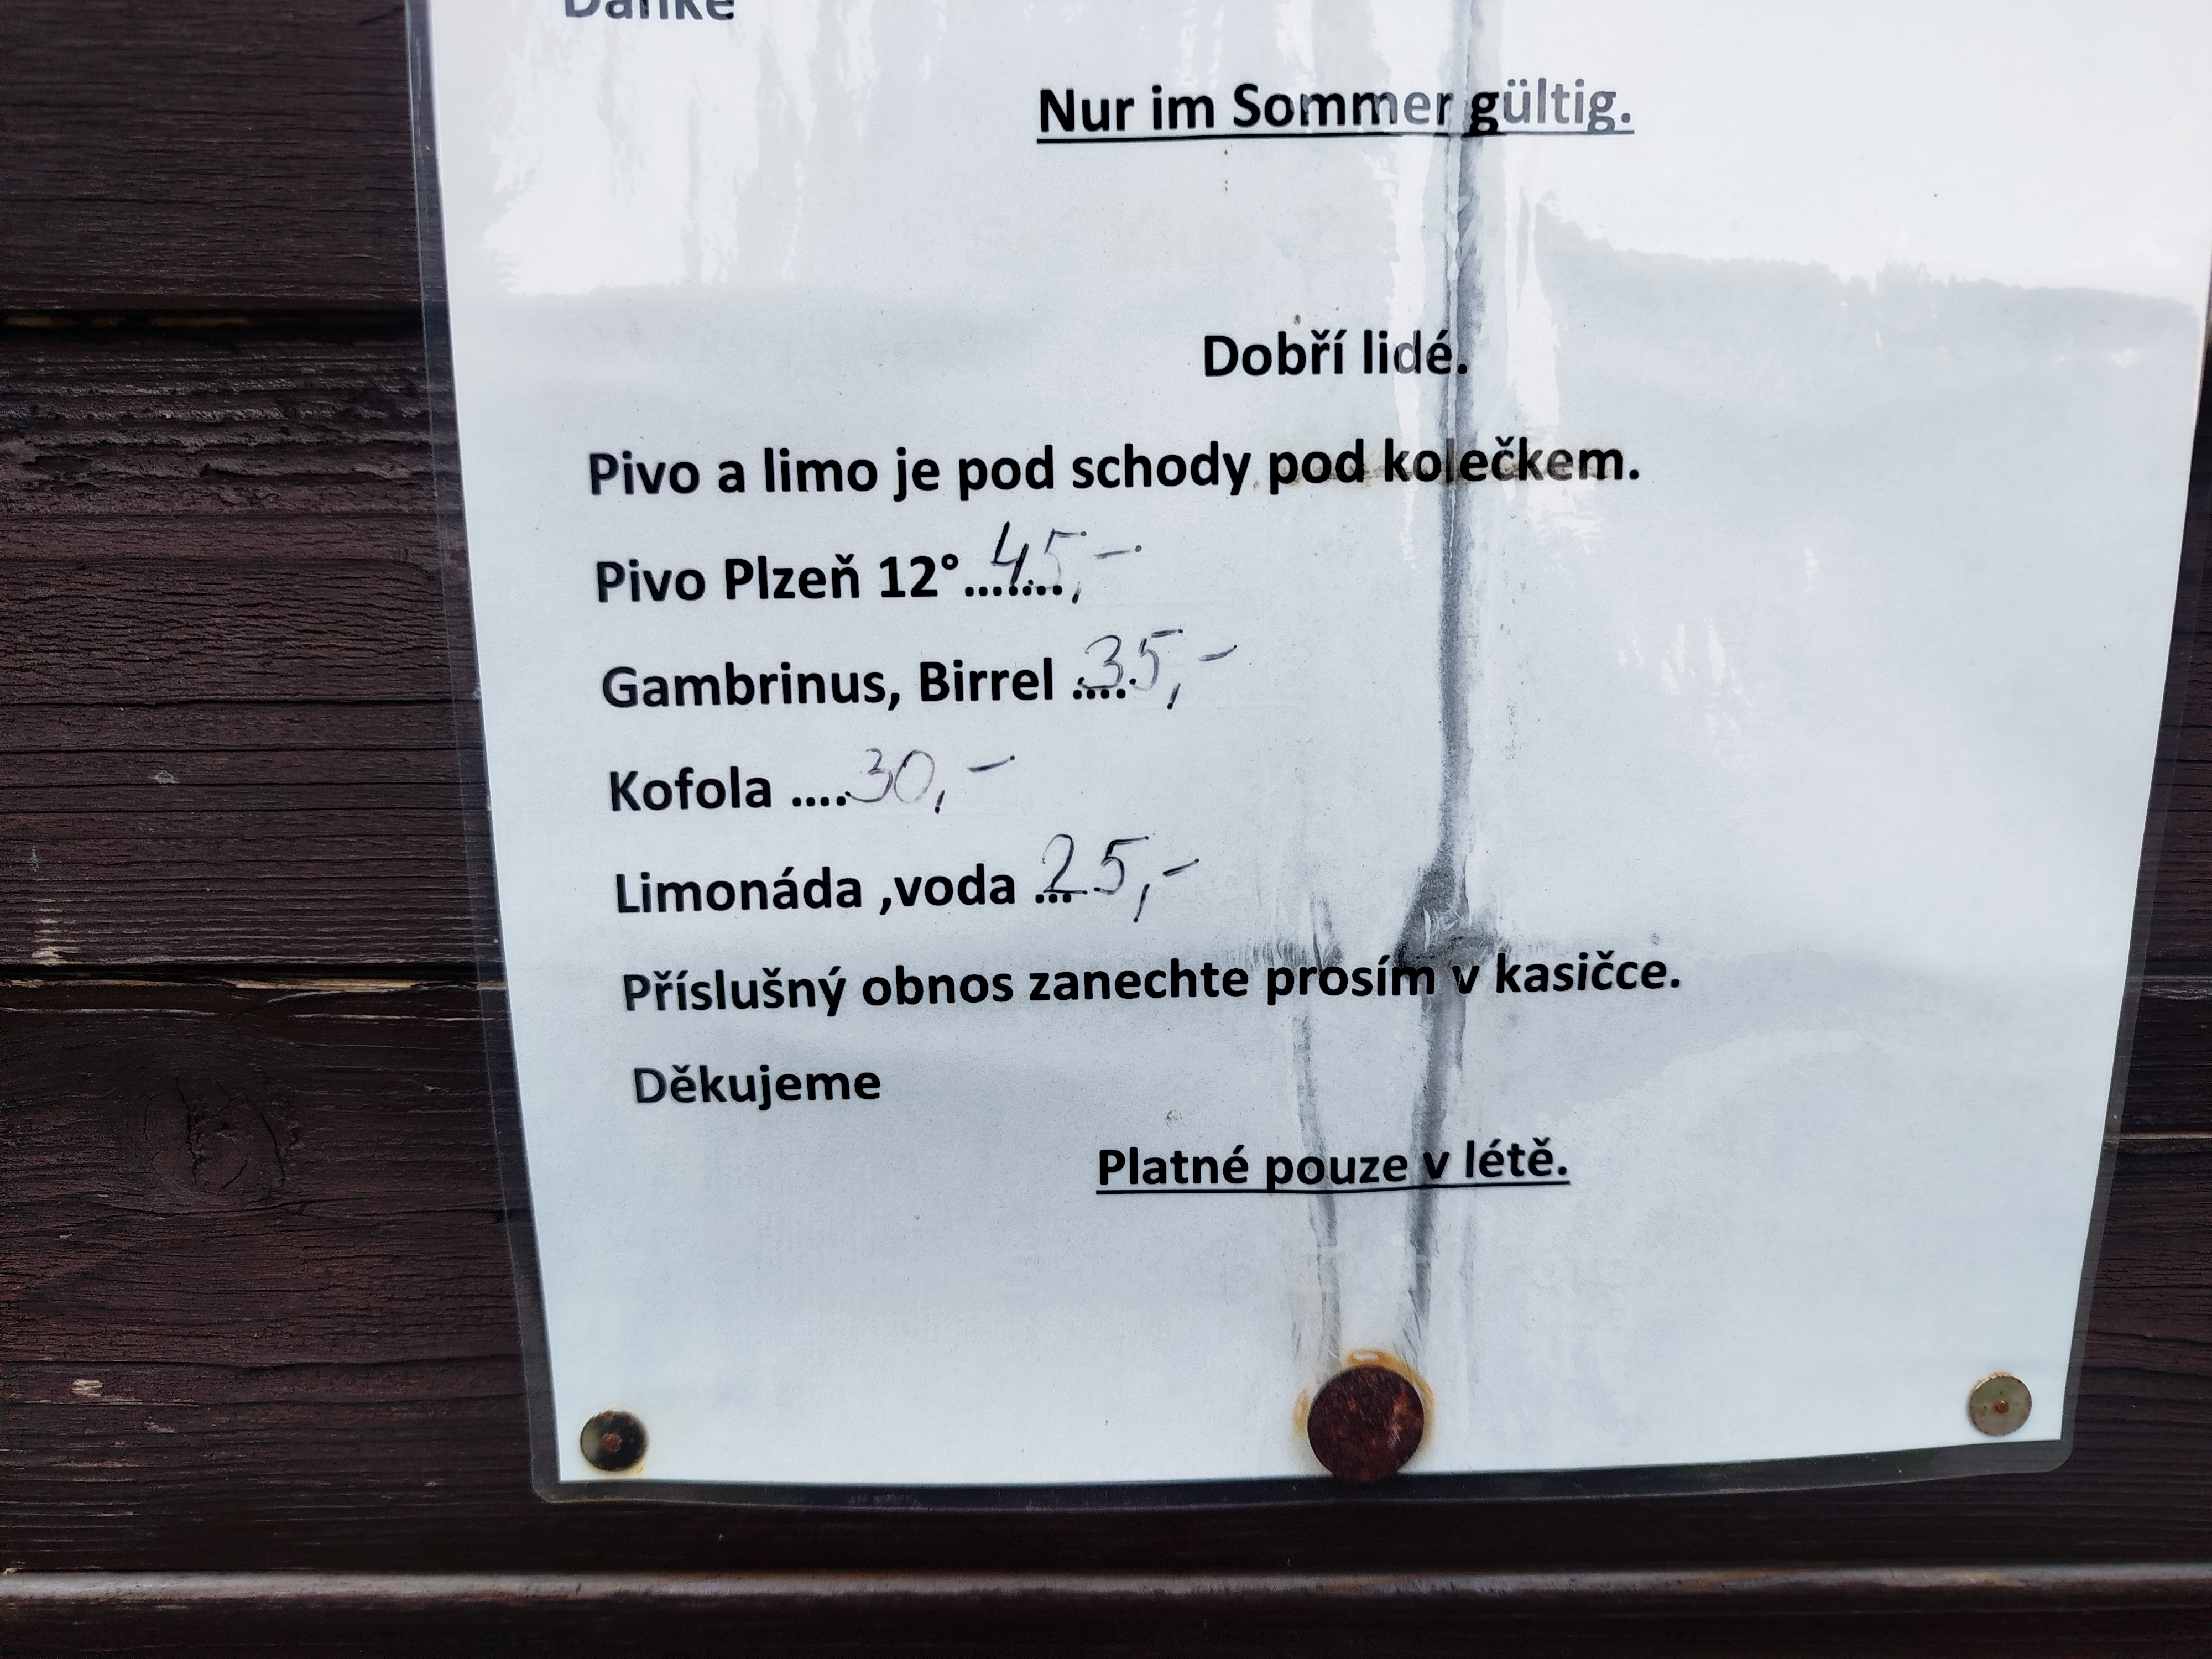 Danke
Nur im Sommer gültig.
Dobří lidé.
Pivo a limo je pod schody pod kolečkem.
Pivo Plzeň 12°.......45,-
Gambrinus, Birrel ....35,-
Kofola ....30,-
Limonáda ,voda ...25,-
Příslušný obnos zanechte prosím v kasičce.
Děkujeme
Platné pouze v létě.